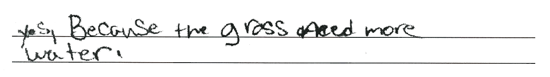 yes, Because the grass need more
water.